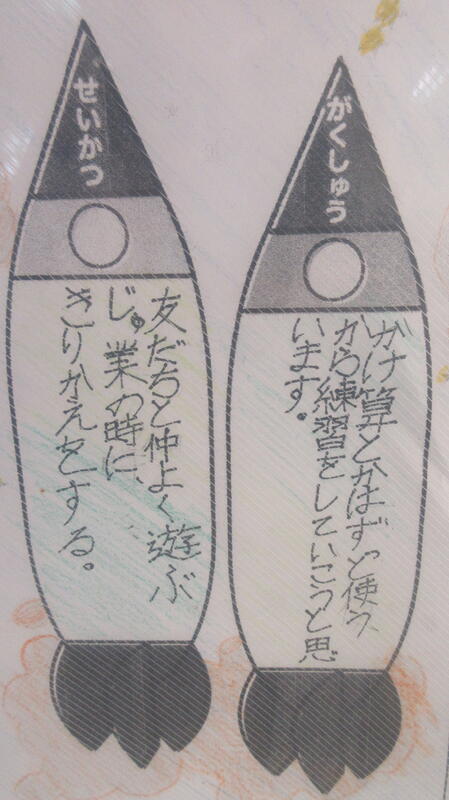 がくしゅう
かけ算とかはずっと使う
から練習をしていこうと思
います。
せいかつ
友だちと仲よく遊ぶ
じゅ業の時に、
きりかえをする。